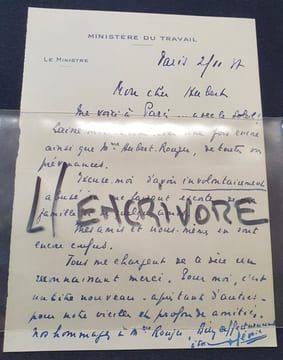 MINISTÈRE DU TRAVAIL
LE MINISTRE
Paris 2/11
Mon cher Hubert
Me voici à Paris ... avec le soleil!
une fois encore
ainsi que Mme Hubert-Rouger, de toutes vos
prévenances.
Excuse-moi d'avoir involontairement
L'ENCRIVORE
mes amis et nous-mêmes en sont
encore confus.
Tous me chargent de te dire un
reconnaissant merci. Pour moi, c'est
un titre nouveau - après tant d'autres -
pour notre vieille et profonde amitié.
nos hommages à Mme Rouger. Bien affectueusement
à toi